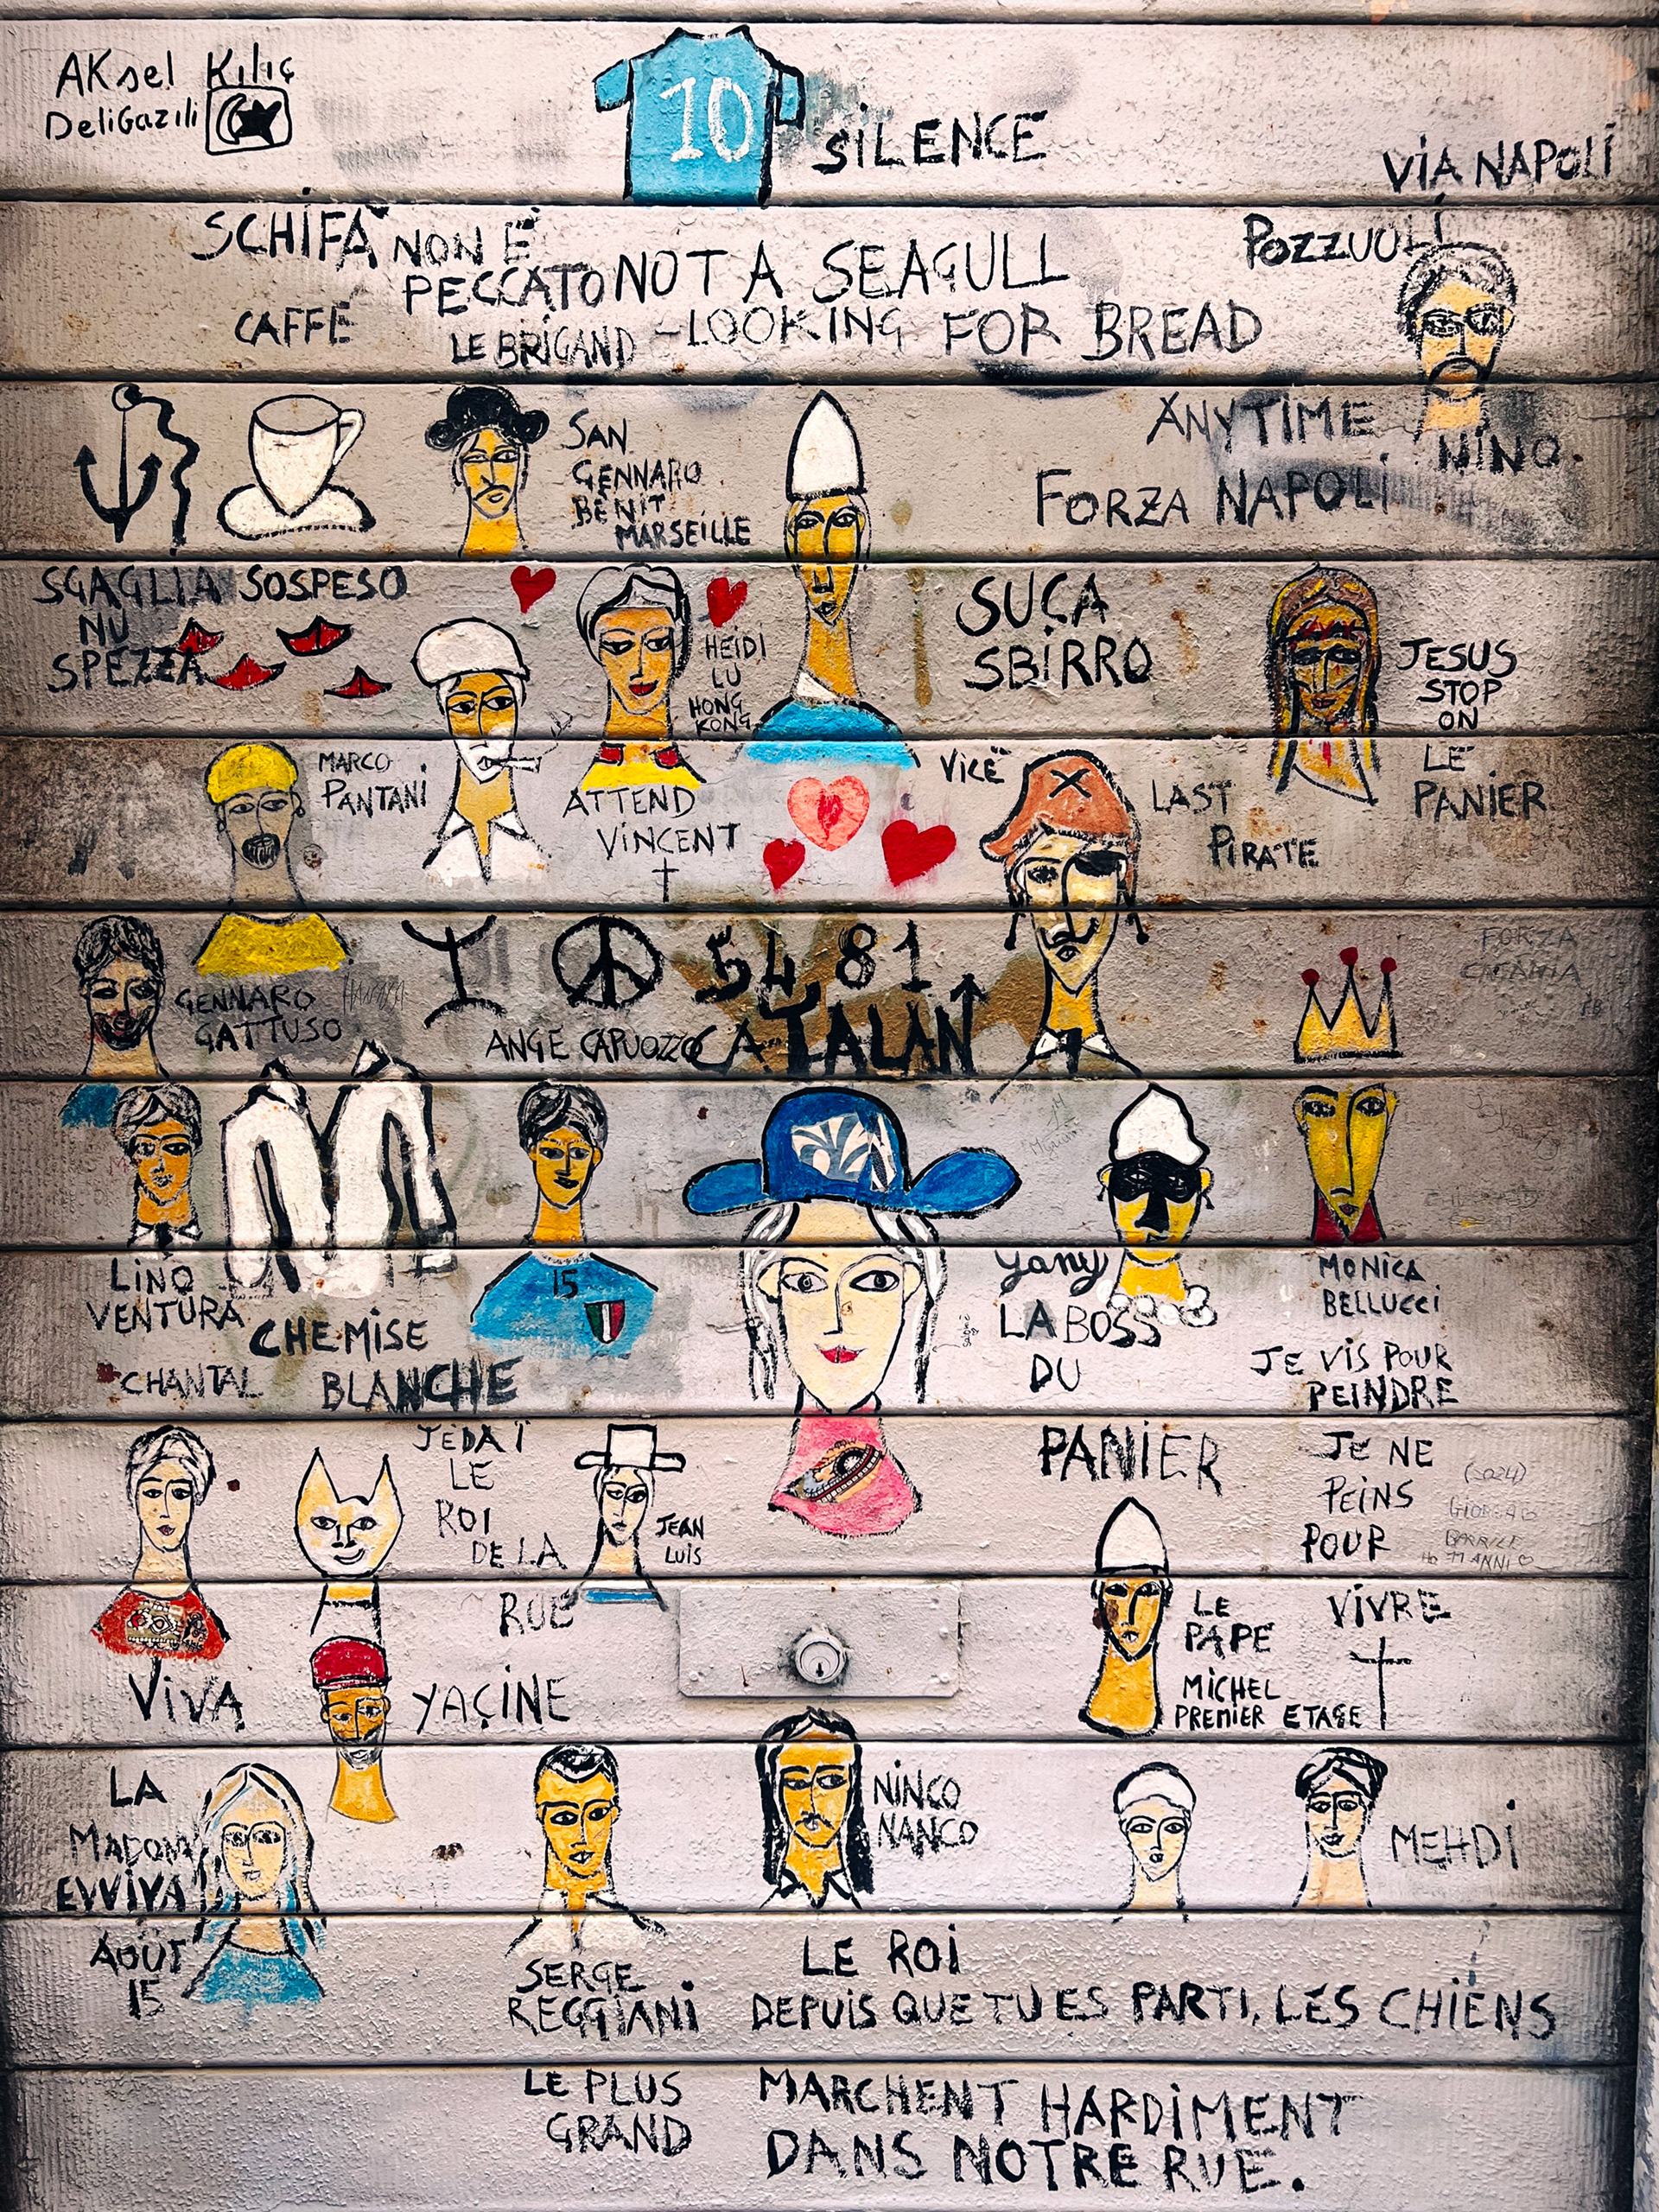 AKsel Kılıç
DeliGazili
10
SiLENCE
ViA NAPOLi
SCHiFA NON É
PECCATO
NOT A SEAGULL
-LOOKiNG FOR BREAD
POZZUOLi
CAFFÉ
LE BRiGAND
SAN
GENNARO
BENiT
MARSEiLLE
ANYTiME
NiNO.
FORZA NAPOLi
SGAGLIA
NU
SPEZZA
SOSPESO
HEiDi
LU
HONG
KONG
SUÇA
SBiRRO
JESUS
STOP
ON
LE
PANiER
MARCO
PANTANi
ATTEND
ViNCENT
ViCË
LAST
PiRATE
FORZA
CATANIA
GENNARO
GATTUSO
54 81
CATALAN
ANGE CAPUOZZO
LiNO
VENTURA
CHEMiSE
BLANCHE
CHANTAL
15
yany
LA BOSS
DU
PANiER
MONiCA
BELLUCCi
JE ViS POUR
PEINDRE
JE NE
PEiNS
POUR
ViVRE
(2024)
JÉDAÏ
LE
ROI
DE LA
RUE
JEAN
LUiS
LE
PAPE
MiCHEL
PREMiER ETAGE
ViVA
YAÇiNE
LA
MADONN
EVViVA
AOUT
15
NiNCO
NANCO
MEHDi
SERGE
REGGiANi
LE PLUS
GRAND
LE ROi
DEPUiS QUE TU ES PARTI, LES CHiENS
MARCHENT HARDiMENT
DANS NOTRE RUE.